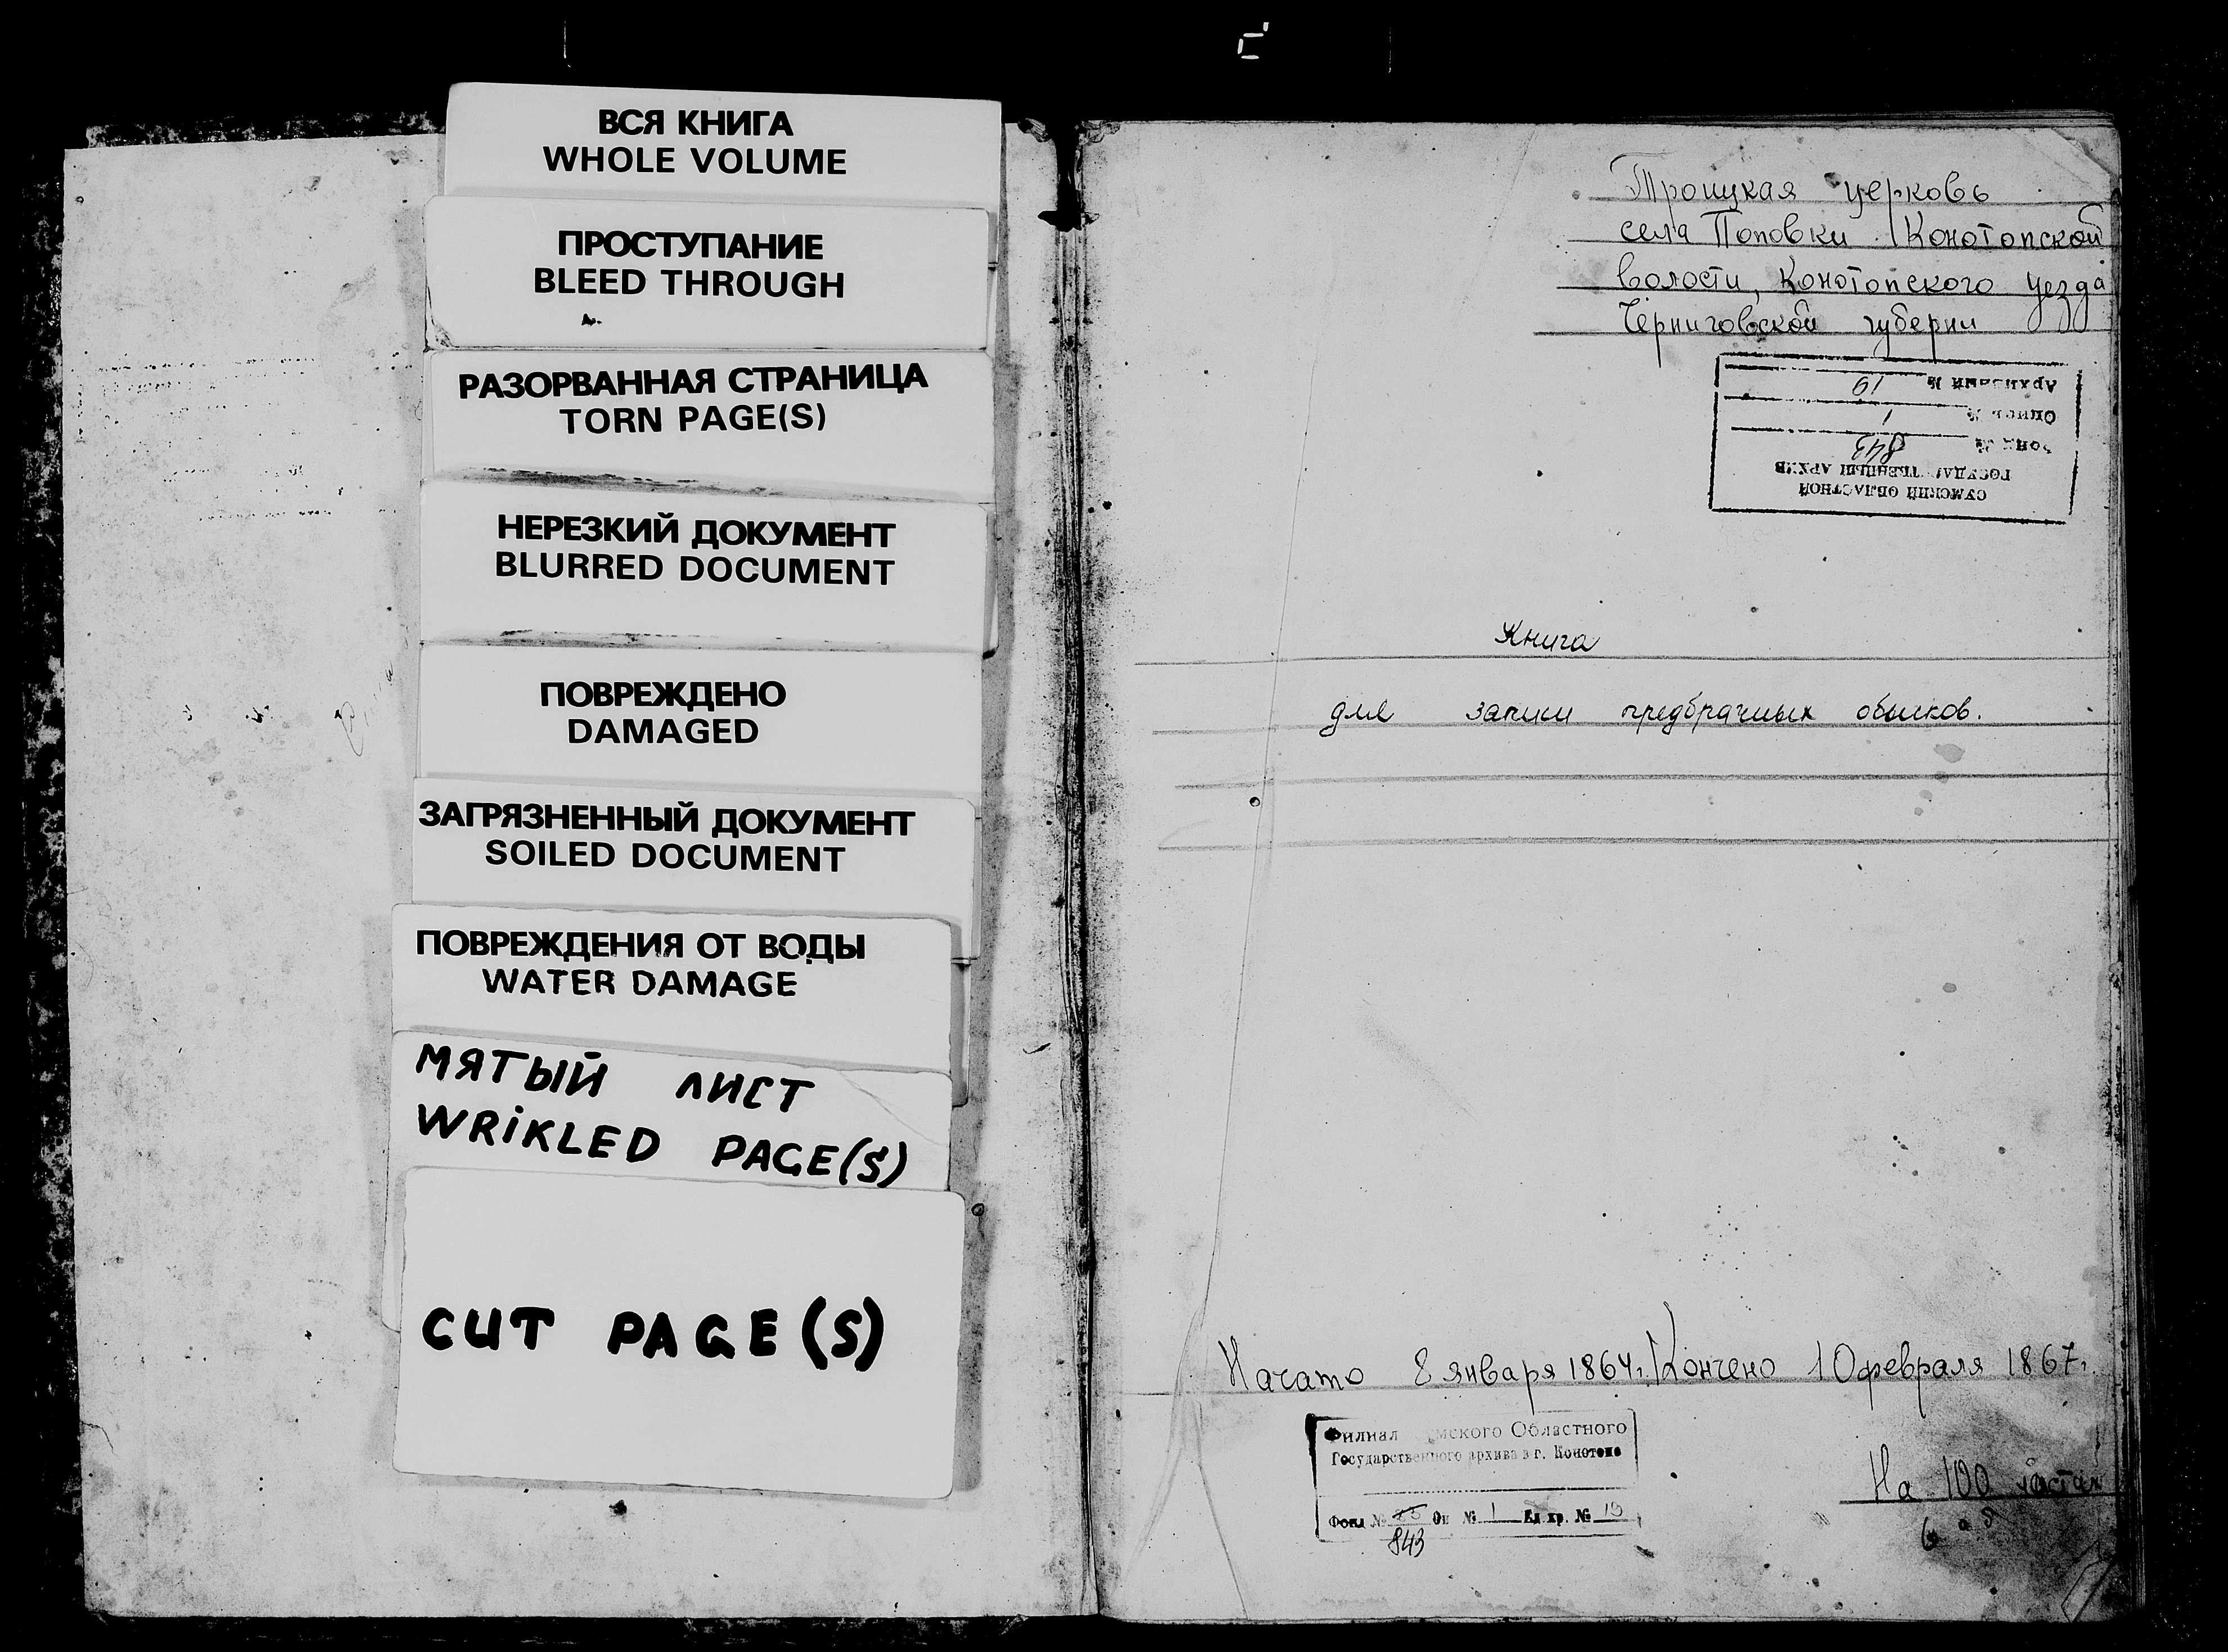 ВСЯ КНИГА
WHOLE VOLUME
ПРОСТУПАНИЕ
BLEED THROUGH
РАЗОРВАННАЯ СТРАНИЦА
TORN PAGE(S)
НЕРЕЗКИЙ ДОКУМЕНТ
BLURRED DOCUMENT
ПОВРЕЖДЕНО
DAMAGED
ЗАГРЯЗНЕННЫЙ ДОКУМЕНТ
SOILED DOCUMENT
ПОВРЕЖДЕНИЯ ОТ ВОДЫ
WATER DAMAGE
МЯТЫЙ ЛИСТ
WRiKLED PAGE(S)
CUT PAGE(S)
Троицкая церковь
села Поповки Конотопской
волости, Конотопского уезда
Черниговской губерни
СУМСКИЙ ОБЛАСТНОЙ
ГОСУДАРСТВЕННЫЙ АРХИВ
Фонд № 843
Опись № 1
Архивный № 19
Книга
для записи предбрачных обысков.
Начато 8 января 1864г. Кончено 10 февраля 1867г.
Филиал Сумского Областного
Государственного архива в г. Конотопе
Фонд № Оп № 1 Ед. хр. № 19
843
На 100 листах